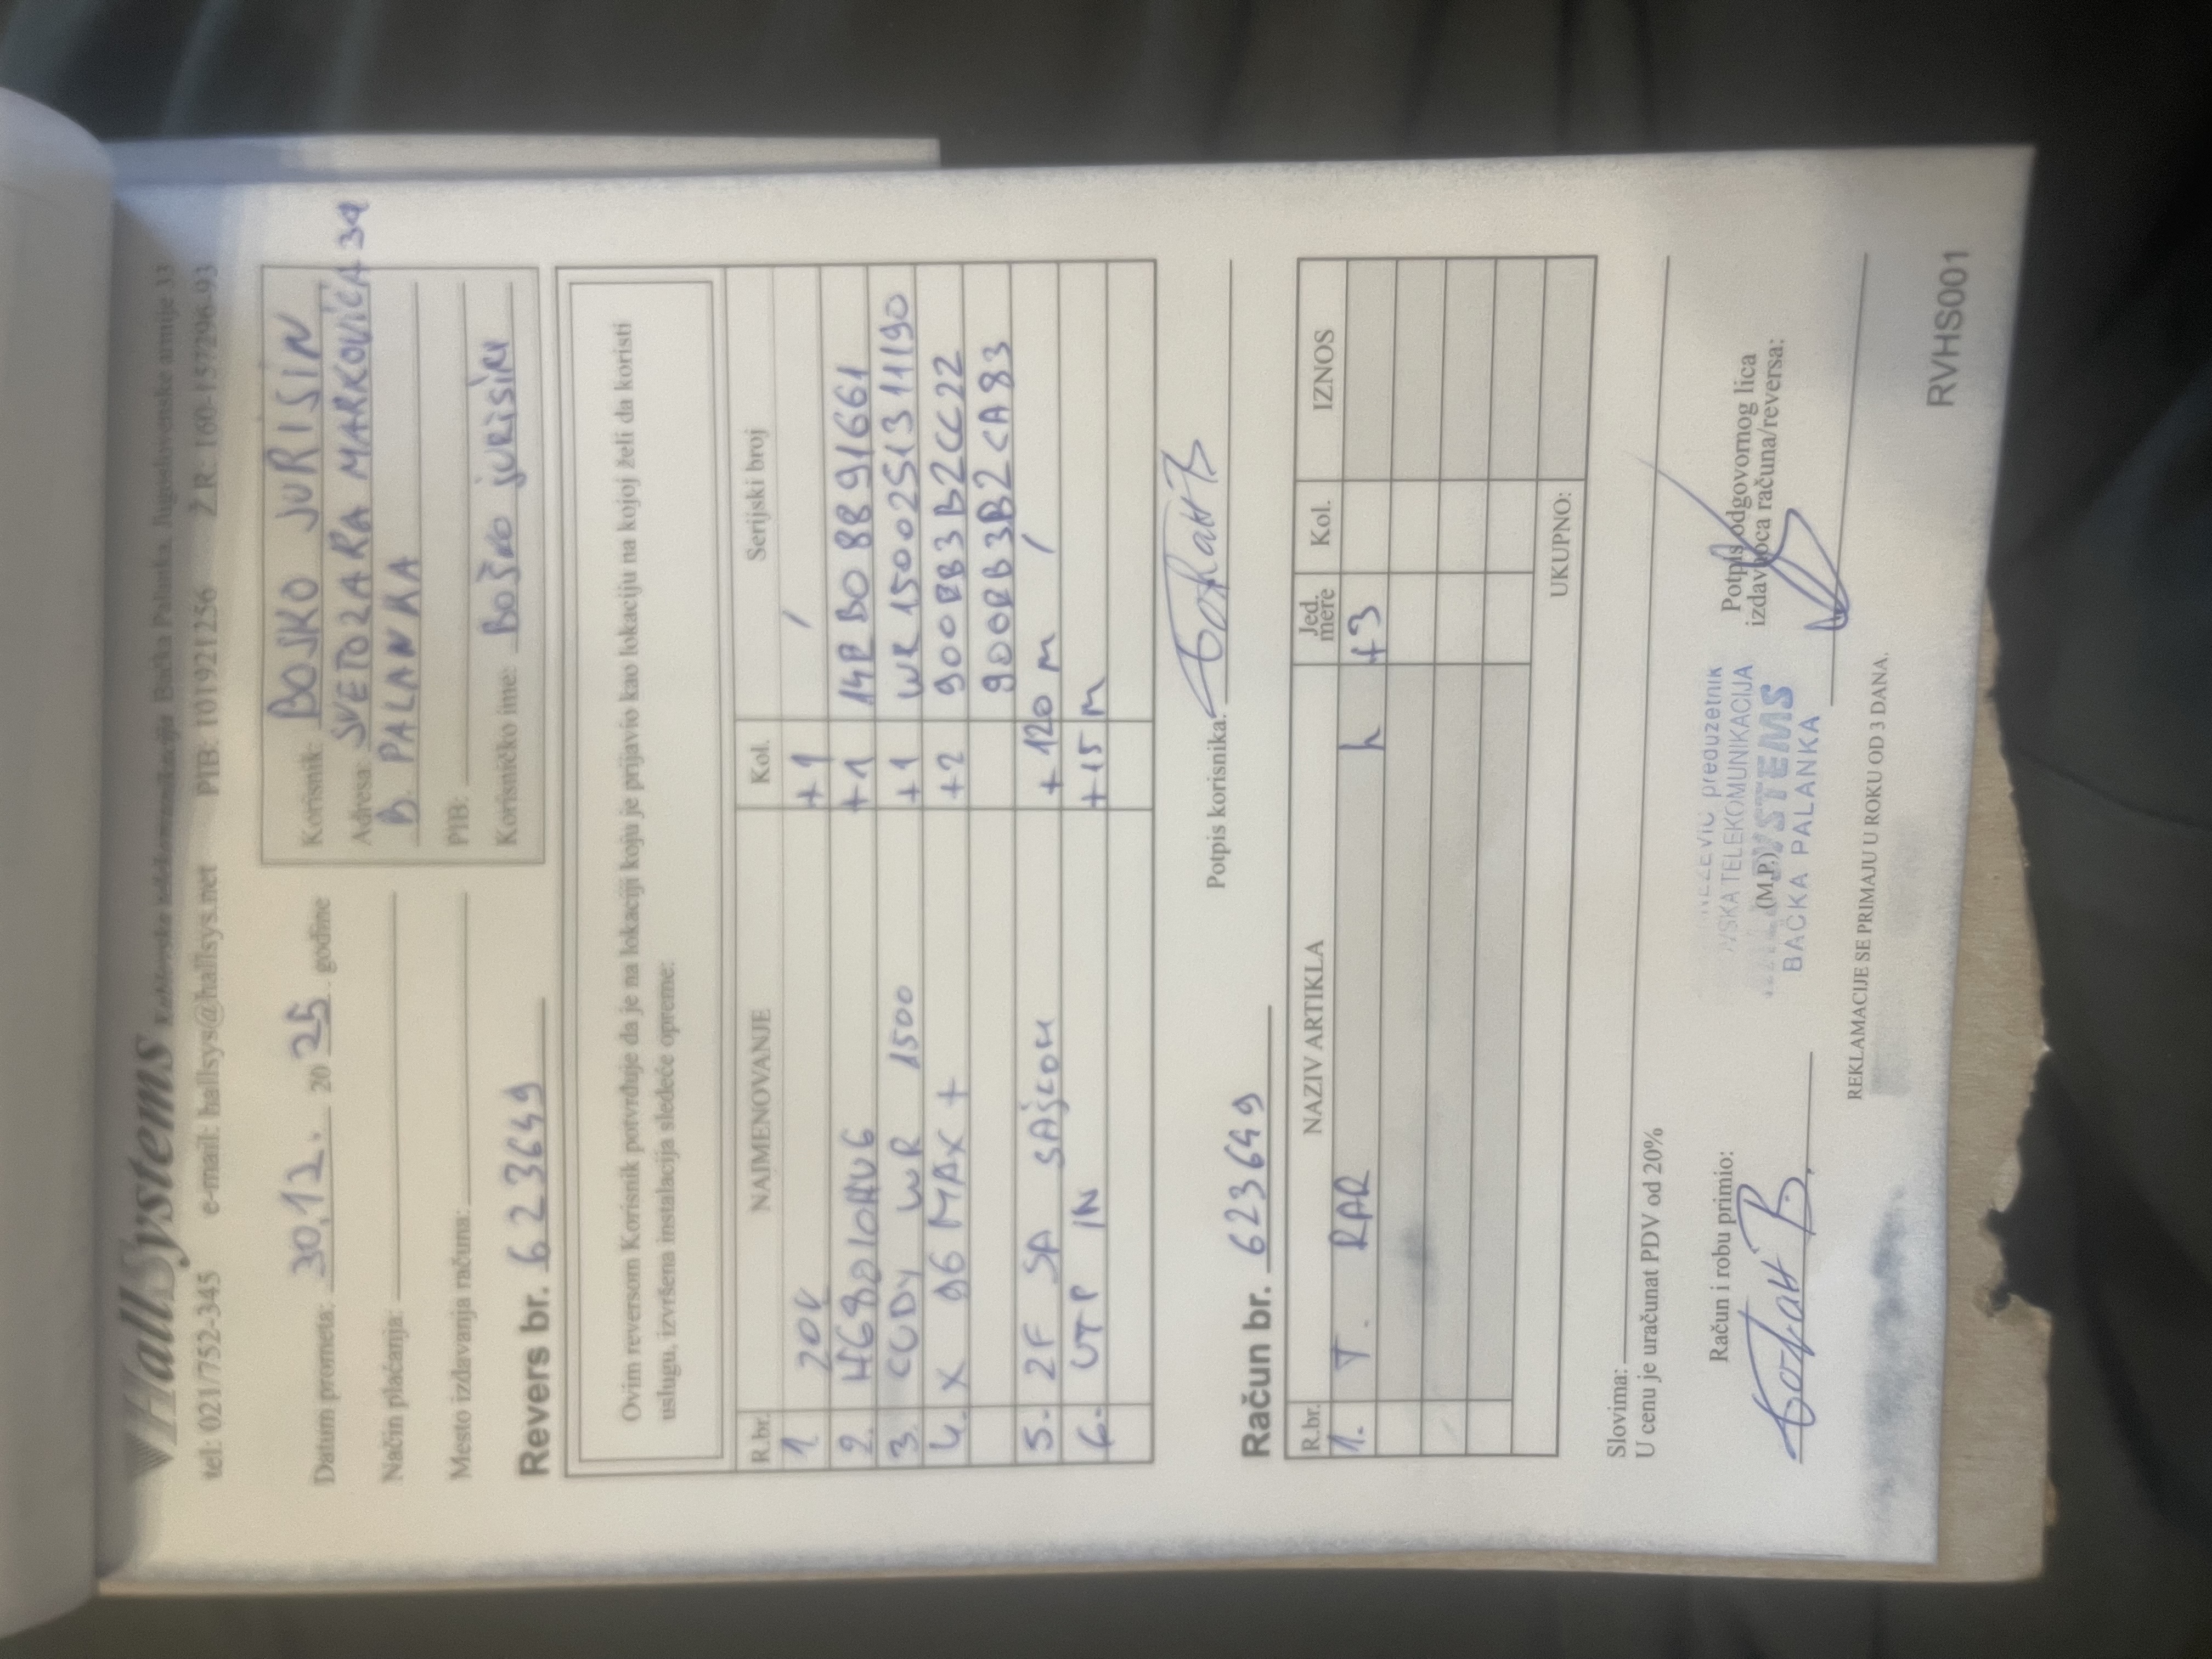 HallSystems Kablovske telekomunikacije Bačka Palanka, Jugoslovenske armije 33
tel: 021/752-345 e-mail: hallsys@hallsys.net PIB: 101921256 Ž.R: 160-157296-93
Datum prometa: 30.12. 2025. godine
Način plaćanja:
Mesto izdavanja računa:
Korisnik: BOSKO JURISIN
Adresa: SVETOZARA MARKOVIĆA 39
B. PALANKA
PIB:
Korisničko ime: BOŠKO JURIŠIN
Revers br. 623649
Ovim reversom Korisnik potvrđuje da je na lokaciji koju je prijavio kao lokaciju na kojoj želi da koristi
uslugu, izvršena instalacija sledeće opreme:
R.br. NAJMENOVANJE Kol. Serijski broj
1. ZOK +1 /
2. HG8010HV6 +1 14RB08891661
3. CUDY WR 1500 +1 WR15002513 11190
4. X 96 MAX + +2 900RB3B2CC22
900RB3B2CA93
5. 2F SA SAJLOM +120 m /
6. UTP IN +15 m
Potpis korisnika:
Račun br. 623649
R.br. NAZIV ARTIKLA Jed. mere Kol. IZNOS
1. T. RAR h +3
UKUPNO:
Slovima:
U cenu je uračunat PDV od 20%
Račun i robu primio:
preduzetnik
TELEKOMUNIKACIJA
(M.P.)
SYSTEMS
BAČKA PALANKA
Potpis odgovornog lica
izdavaoca računa/reversa:
REKLAMACIJE SE PRIMAJU U ROKU OD 3 DANA.
RVHS001